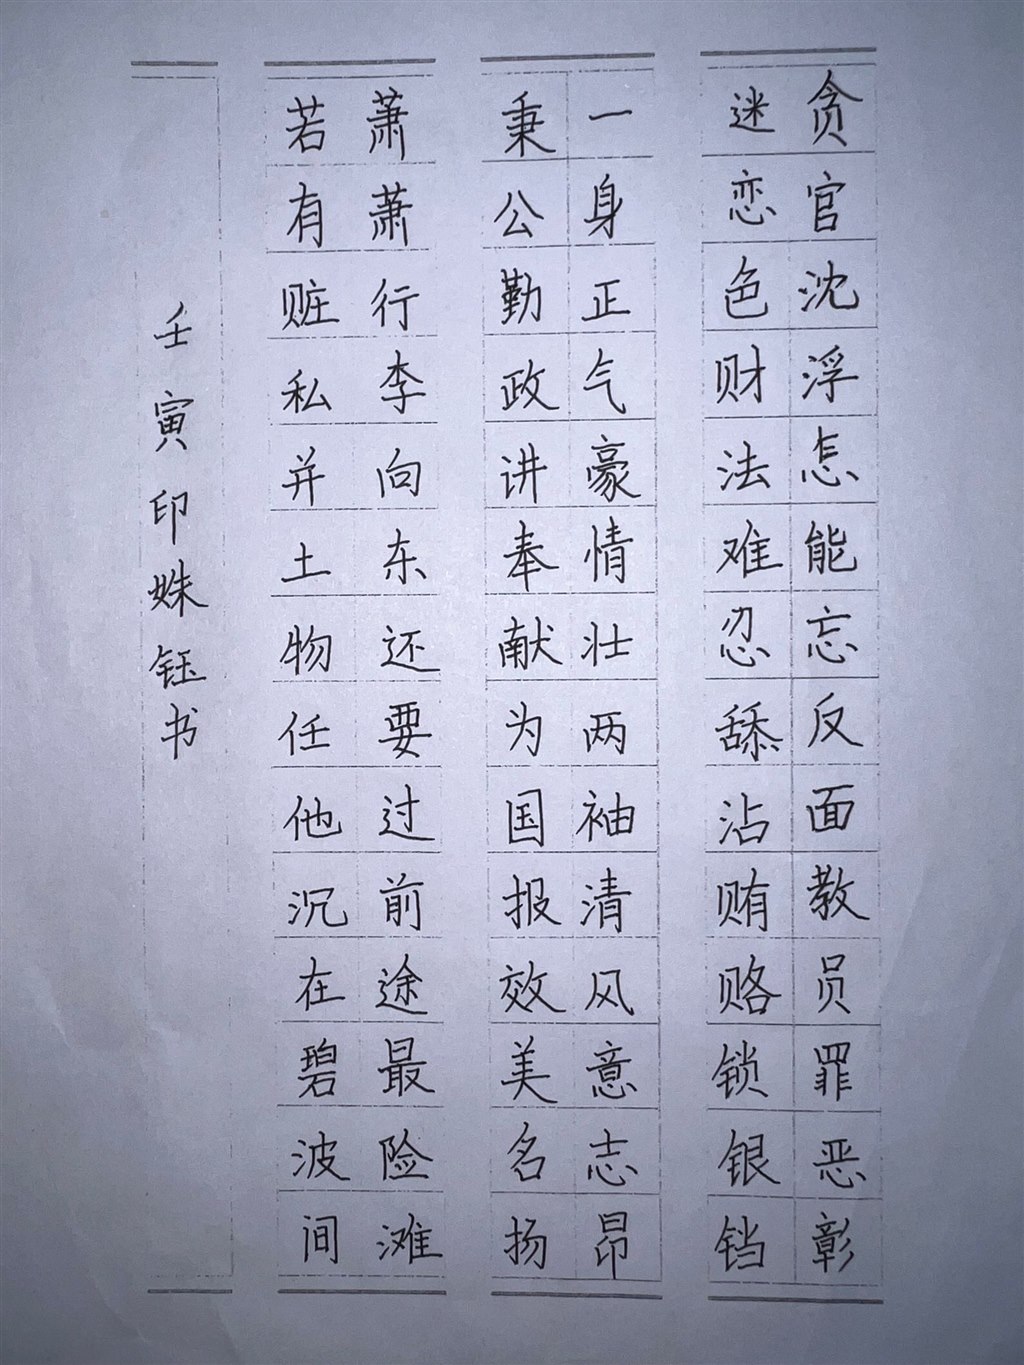 贪官沈浮怎能忘反面教员罪恶彰
迷恋色财法难忍舔沾贿赂锁银铛
一身正气豪情壮两袖清风意志昂
秉公勤政讲奉献为国报效美名扬
萧萧行李向东还要过前途最险滩
若有赃私并土物任他沉在碧波间
壬寅印姝钰书